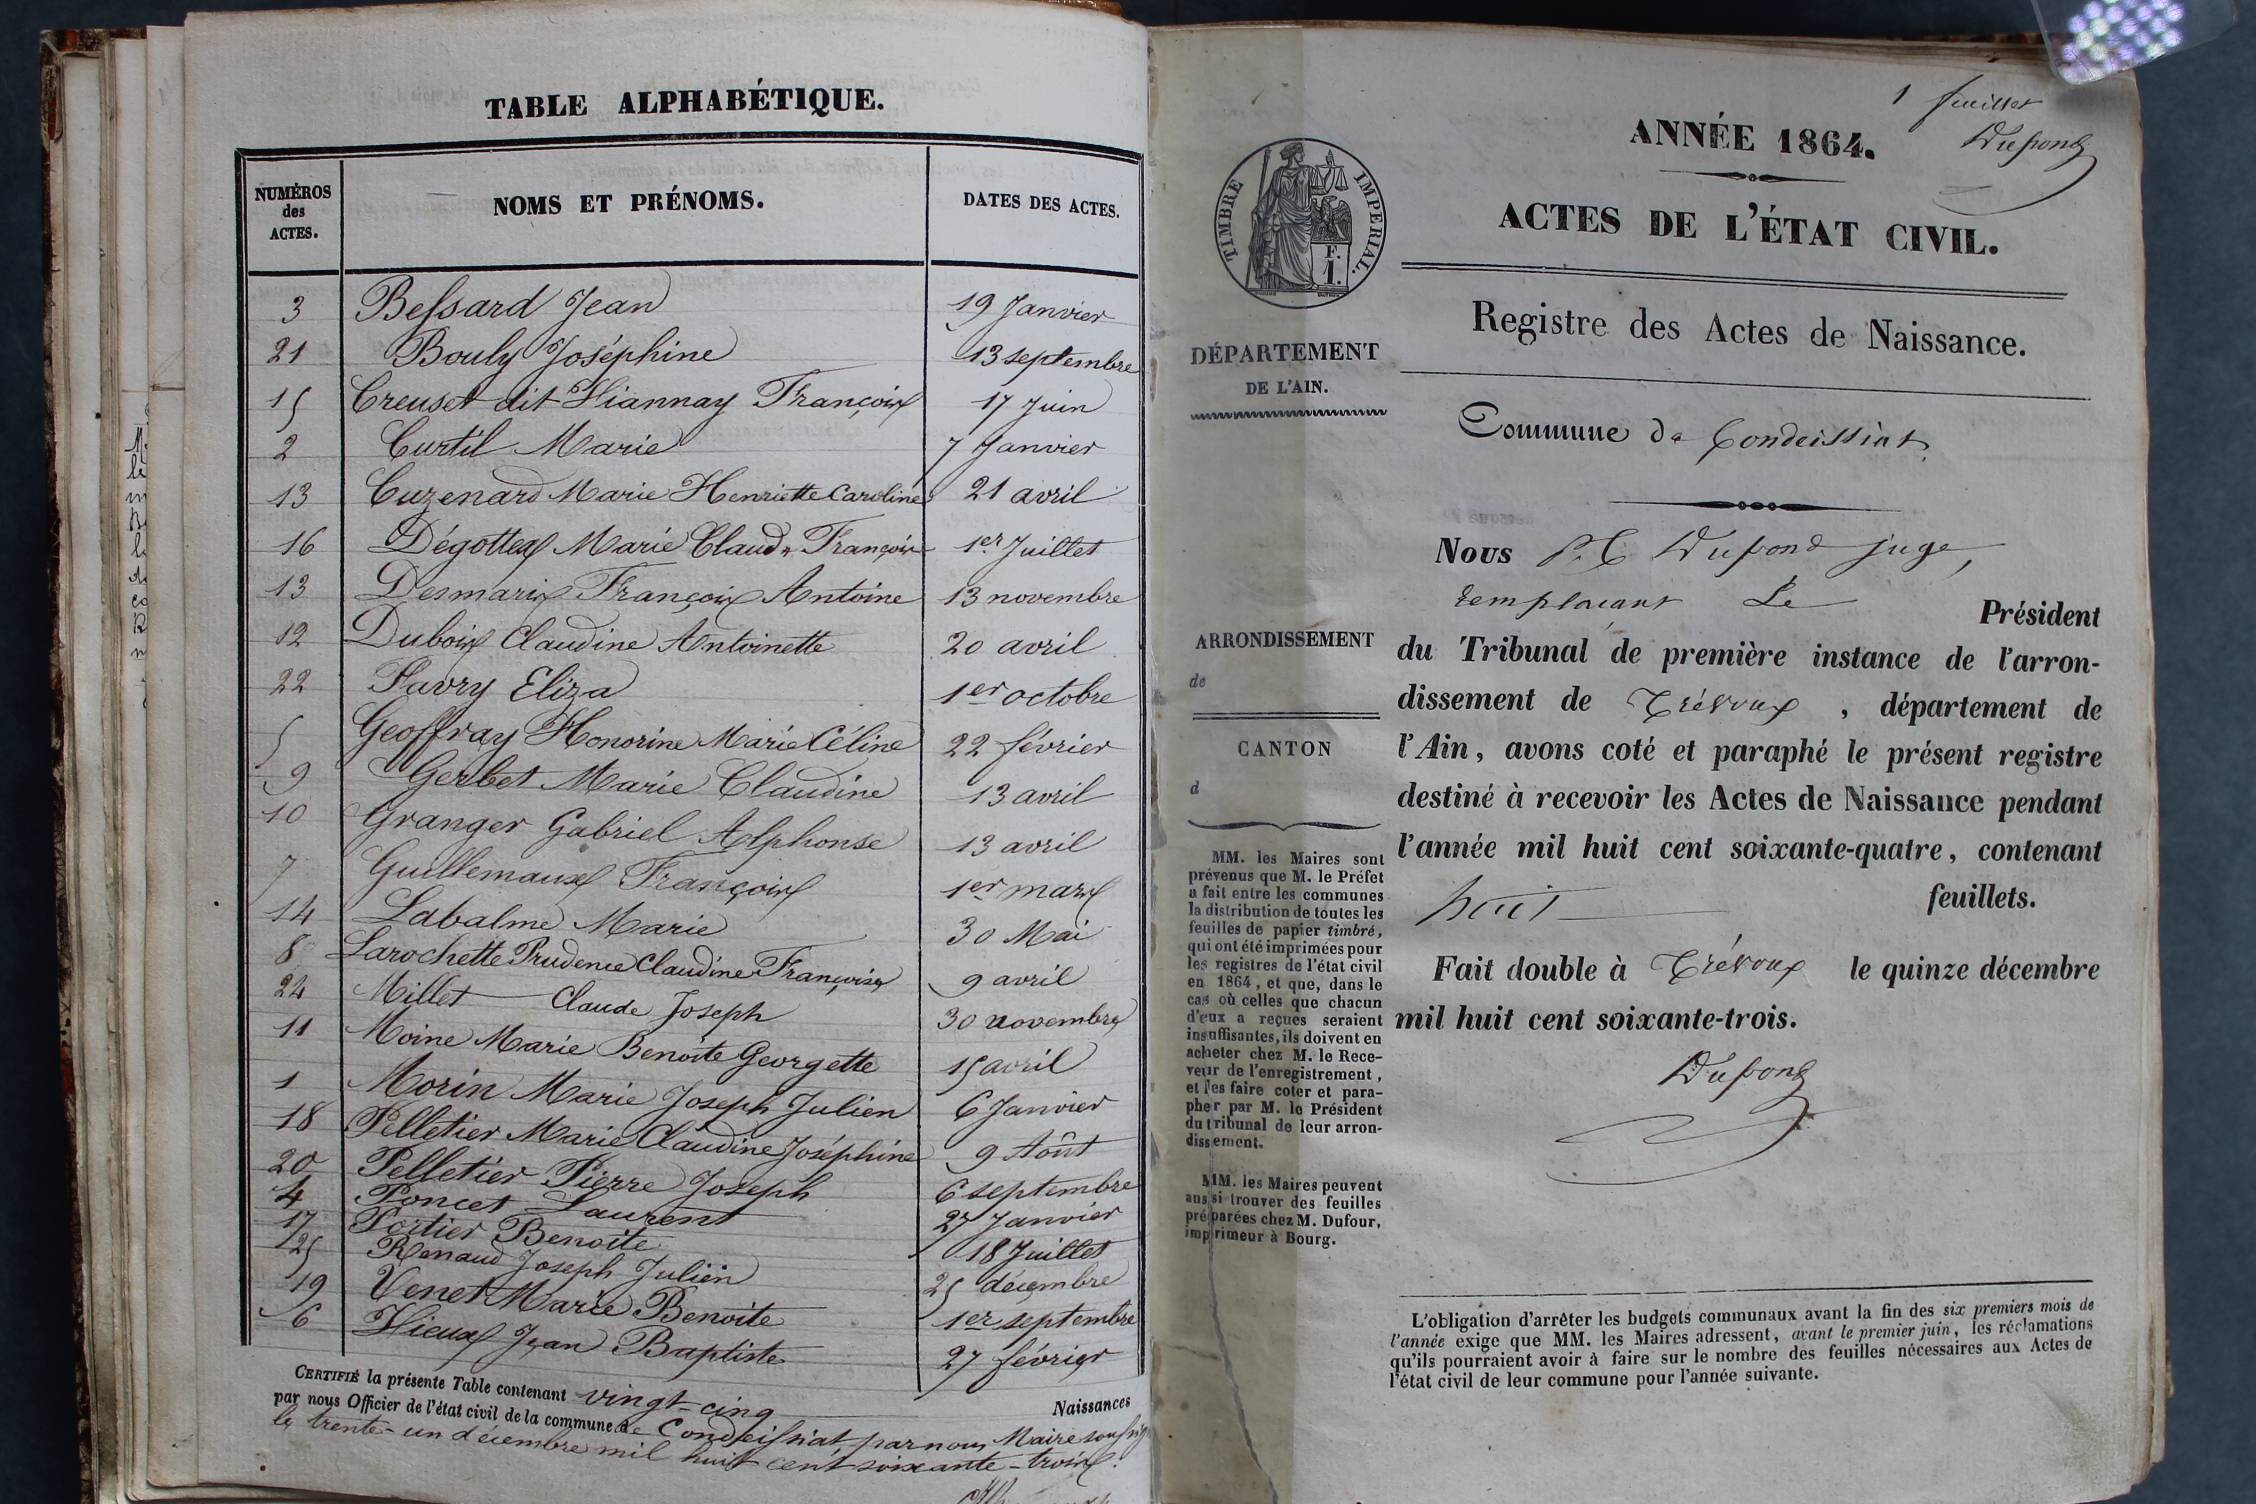 TABLE ALPHABÉTIQUE.
NUMÉROS des ACTES.
NOMS ET PRÉNOMS.
DATES DES ACTES.
3 Bessard Jean 19 Janvier
21 Bouly Joséphine 13 septembre
15 Creuset dit Viannay François 17 Juin
2 Curtil Marie 7 Janvier
13 Cuzenard Marie Henriette Caroline 21 avril
16 Dégottex Marie Claude François 1er Juillet
13 Desmaris François Antoine 13 novembre
12 Dubois Claudine Antoinette 20 avril
22 Favry Eliza 1er octobre
5 Geoffray Honorine Marie Céline 22 février
9 Gerbet Marie Claudine 13 avril
10 Granger Gabriel Alphonse 13 avril
7 Guillemaux François 1er mars
14 Labalme Marie 30 Mai
8 Larochette Prudence Claudine Françoise 9 avril
24 Millet Claude Joseph 30 novembre
11 Moine Marie Benoite Georgette 15 avril
1 Morin Marie Joseph Julien 6 Janvier
18 Pelletier Marie Claudine Joséphine 9 Août
20 Pelletier Pierre Joseph 6 septembre
4 Poncet Laurent 27 Janvier
17 Portier Benoite 18 Juillet
25 Renaud Joseph Julien 25 décembre
19 Venet Marie Benoite 1er septembre
6 Vieux Jean Baptiste 27 février
CERTIFIÉ la présente Table contenant vingt-cinq Naissances
par nous Officier de l'état civil de la commune de Condeissiat par nous Maire
le trente-un décembre mil huit cent soixante-trois.
1 feuillet
Dupond
ANNÉE 1864.
ACTES DE L'ÉTAT CIVIL.
Registre des Actes de Naissance.
TIMBRE IMPERIAL.
F.
1.
DÉPARTEMENT
DE L'AIN.
Commune de Condeissiat
Nous P. C. Dupond juge,
remplaçant Le Président
du Tribunal de première instance de l'arron-
dissement de Trévoux, département de
l'Ain, avons coté et paraphé le présent registre
destiné à recevoir les Actes de Naissance pendant
l'année mil huit cent soixante-quatre, contenant
huit feuillets.
Fait double à Trévoux le quinze décembre
mil huit cent soixante-trois.
Dupond
ARRONDISSEMENT
de
CANTON
d
MM. les Maires sont
prévenus que M. le Préfet
a fait entre les communes
la distribution de toutes les
feuilles de papier timbré,
qui ont été imprimées pour
les registres de l'état civil
en 1864, et que, dans le
cas où celles que chacun
d'eux a reçues seraient
insuffisantes, ils doivent en
acheter chez M. le Rece-
veur de l'enregistrement,
et les faire coter et para-
pher par M. le Président
du tribunal de leur arron-
dissement.
MM. les Maires peuvent
aussi trouver des feuilles
préparées chez M. Dufour,
imprimeur à Bourg.
L'obligation d'arrêter les budgets communaux avant la fin des six premiers mois de
l'année exige que MM. les Maires adressent, avant le premier juin, les réclamations
qu'ils pourraient avoir à faire sur le nombre des feuilles nécessaires aux Actes de
l'état civil de leur commune pour l'année suivante.